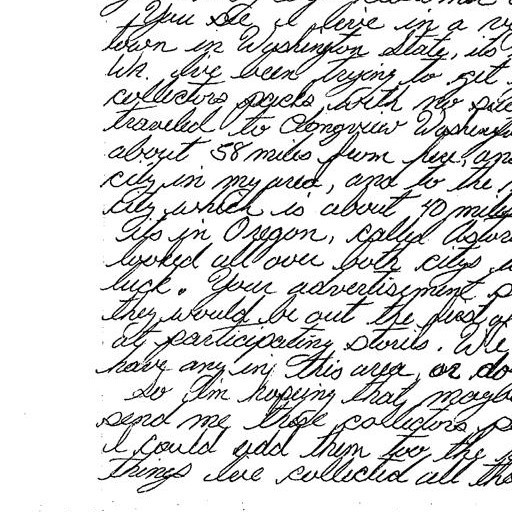 You see, I live in a
town in Washington State, its
Wa. Ive been trying to get
collectors packs, with no
traveled to Longview Washington
about 58 miles from here, and
city in my area, and to the
city which is about 40 miles
Its in Oregon, called
looked all over both citys
luck. Your advertisement
they would be out the first of
at participating stores. We
have any in this area, or do
so I'm hoping that maybe
send me those collectors
I could add them too the
things Ive collected all